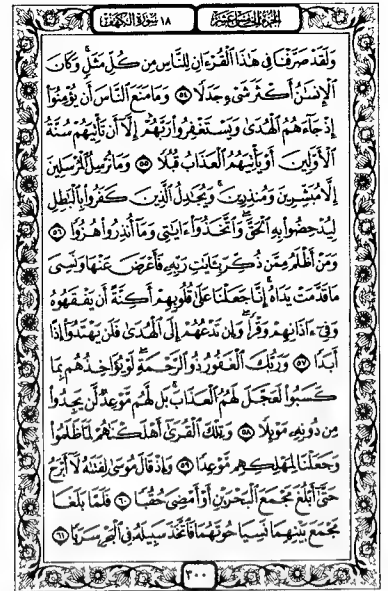 الجزء الخامس عشر ١٨ سورة الكهف
وَلَقَدْ صَرَّفْنَا فِي هَٰذَا الْقُرْءَانِ لِلنَّاسِ مِن كُلِّ مَثَلٍ ۚ وَكَانَ
الْإِنسَٰنُ أَكْثَرَ شَىْءٍ جَدَلًا ٥٤ وَمَا مَنَعَ النَّاسَ أَن يُؤْمِنُوٓا۟
إِذْ جَآءَهُمُ الْهُدَىٰ وَيَسْتَغْفِرُوا۟ رَبَّهُمْ إِلَّآ أَن تَأْتِيَهُمْ سُنَّةُ
الْأَوَّلِينَ أَوْ يَأْتِيَهُمُ الْعَذَابُ قُبُلًا ٥٥ وَمَا نُرْسِلُ الْمُرْسَلِينَ
إِلَّا مُبَشِّرِينَ وَمُنذِرِينَ ۚ وَيُجَٰدِلُ الَّذِينَ كَفَرُوا۟ بِالْبَٰطِلِ
لِيُدْحِضُوا۟ بِهِ الْحَقَّ ۖ وَاتَّخَذُوٓا۟ ءَايَٰتِى وَمَآ أُنذِرُوا۟ هُزُوًا ٥٦
وَمَنْ أَظْلَمُ مِمَّن ذُكِّرَ بِـَٔايَٰتِ رَبِّهِۦ فَأَعْرَضَ عَنْهَا وَنَسِىَ
مَا قَدَّمَتْ يَدَاهُ ۚ إِنَّا جَعَلْنَا عَلَىٰ قُلُوبِهِمْ أَكِنَّةً أَن يَفْقَهُوهُ
وَفِىٓ ءَاذَانِهِمْ وَقْرًا ۖ وَإِن تَدْعُهُمْ إِلَى الْهُدَىٰ فَلَن يَهْتَدُوٓا۟ إِذًا
أَبَدًا ٥٧ وَرَبُّكَ الْغَفُورُ ذُو الرَّحْمَةِ ۖ لَوْ يُؤَاخِذُهُم بِمَا
كَسَبُوا۟ لَعَجَّلَ لَهُمُ الْعَذَابَ ۚ بَل لَّهُم مَّوْعِدٌ لَّن يَجِدُوا۟
مِن دُونِهِۦ مَوْئِلًا ٥٨ وَتِلْكَ الْقُرَىٰٓ أَهْلَكْنَٰهُمْ لَمَّا ظَلَمُوا۟
وَجَعَلْنَا لِمَهْلِكِهِم مَّوْعِدًا ٥٩ وَإِذْ قَالَ مُوسَىٰ لِفَتَىٰهُ لَآ أَبْرَحُ
حَتَّىٰٓ أَبْلُغَ مَجْمَعَ الْبَحْرَيْنِ أَوْ أَمْضِىَ حُقُبًا ٦٠ فَلَمَّا بَلَغَا
مَجْمَعَ بَيْنِهِمَا نَسِيَا حُوتَهُمَا فَاتَّخَذَ سَبِيلَهُۥ فِى الْبَحْرِ سَرَبًا ٦١
٣٠٠